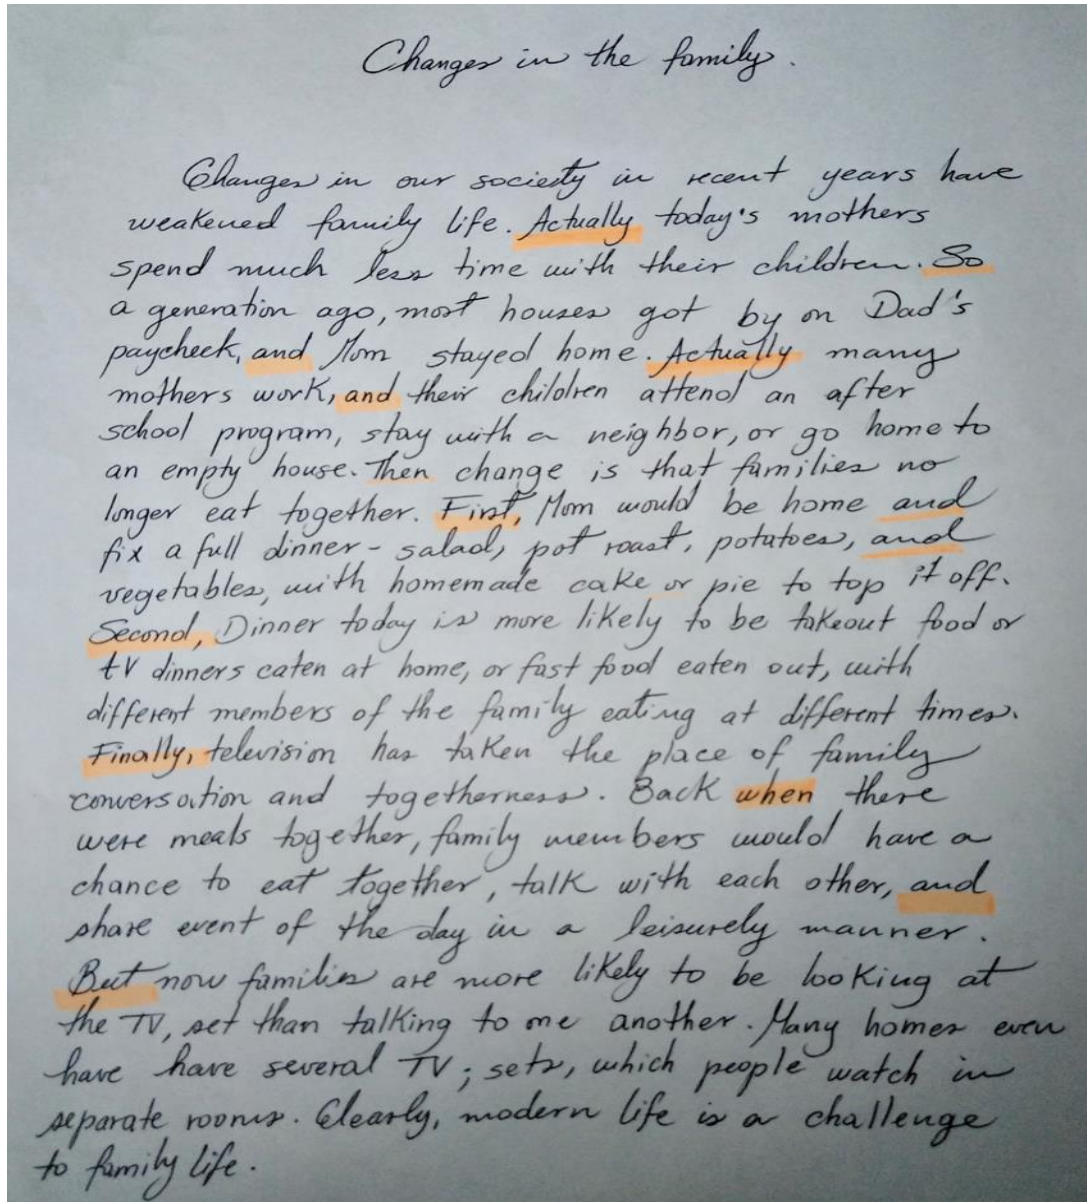 Changes in the family.
Changes in our society in recent years have
weakened family life. Actually today's mothers
spend much less time with their children. So
a generation ago, most houses got by on Dad's
paycheck, and Mom stayed home. Actually many
mothers work, and their children attend an after
school program, stay with a neighbor, or go home to
an empty house. Then change is that families no
longer eat together. First, Mom would be home and
fix a full dinner - salad, pot roast, potatoes, and
vegetables, with homemade cake or pie to top it off.
Second, Dinner today is more likely to be takeout food or
tV dinners eaten at home, or fast food eaten out, with
different members of the family eating at different times.
Finally, television has taken the place of family
conversation and togetherness. Back when there
were meals together, family members would have a
chance to eat together, talk with each other, and
share event of the day in a leisurely manner.
But now families are more likely to be looking at
the TV, set than talking to one another. Many homes even
have have several TV; sets, which people watch in
separate rooms. Clearly, modern life is a challenge
to family life.